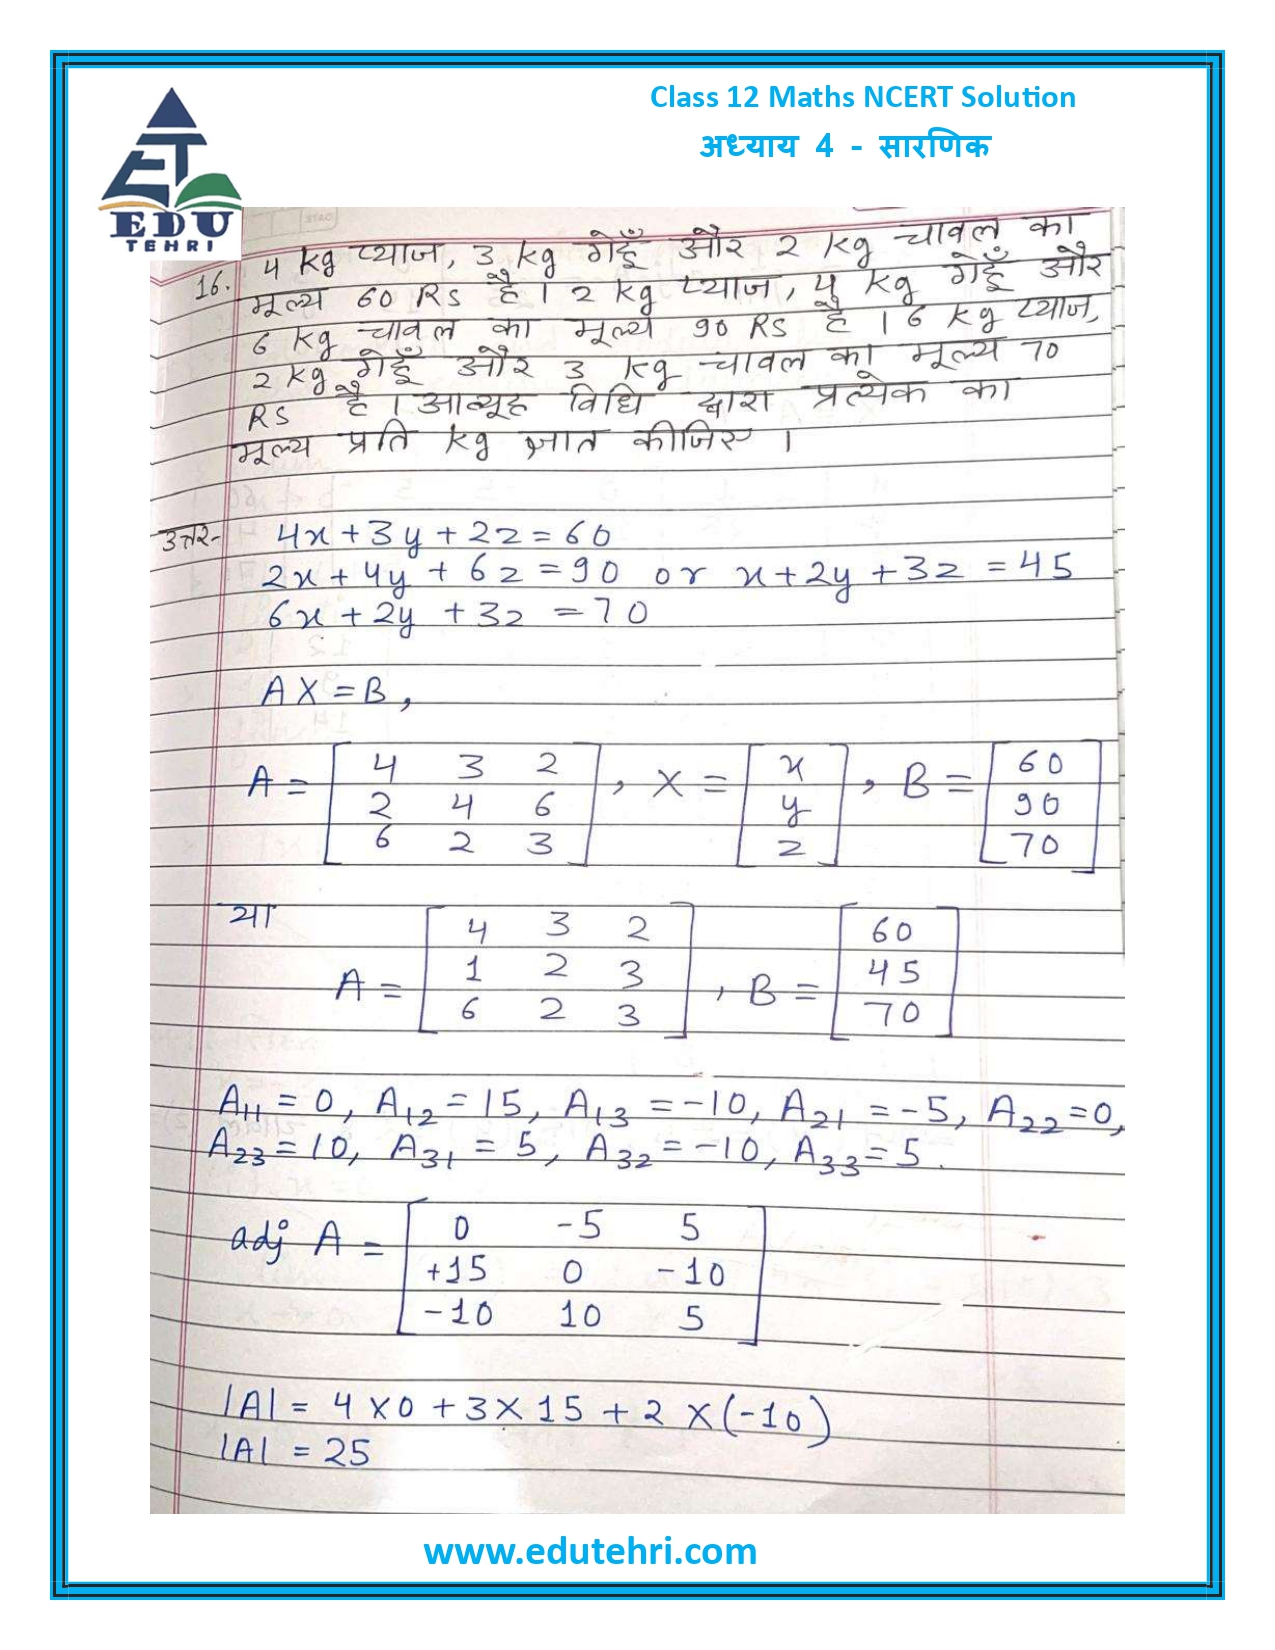 Class 12 Maths NCERT Solution
अध्याय 4 - सारणिक
EDU
TEHRI
16. 4 kg प्याज, 3 kg गेहूँ और 2 kg चावल का
मूल्य 60 RS है । 2 kg प्याज, 4 kg गेहूँ और
6 kg चावल का मूल्य 90 RS है । 6 kg प्याज,
2 kg गेहूँ और 3 kg चावल का मूल्य 70
RS है । आव्यूह विधि द्वारा प्रत्येक का
मूल्य प्रति kg ज्ञात कीजिए ।
उत्तर- 4x + 3y + 2z = 60
2x + 4y + 6z = 90 or x + 2y + 3z = 45
6x + 2y + 3z = 70
AX = B,
A = [4 3 2; 2 4 6; 6 2 3], X = [x; y; z], B = [60; 90; 70]
या
A = [4 3 2; 1 2 3; 6 2 3], B = [60; 45; 70]
A11 = 0, A12 = 15, A13 = -10, A21 = -5, A22 = 0,
A23 = 10, A31 = 5, A32 = -10, A33 = 5.
adj A = [0 -5 5; +15 0 -10; -10 10 5]
|A| = 4 × 0 + 3 × 15 + 2 × (-10)
|A| = 25
www.edutehri.com